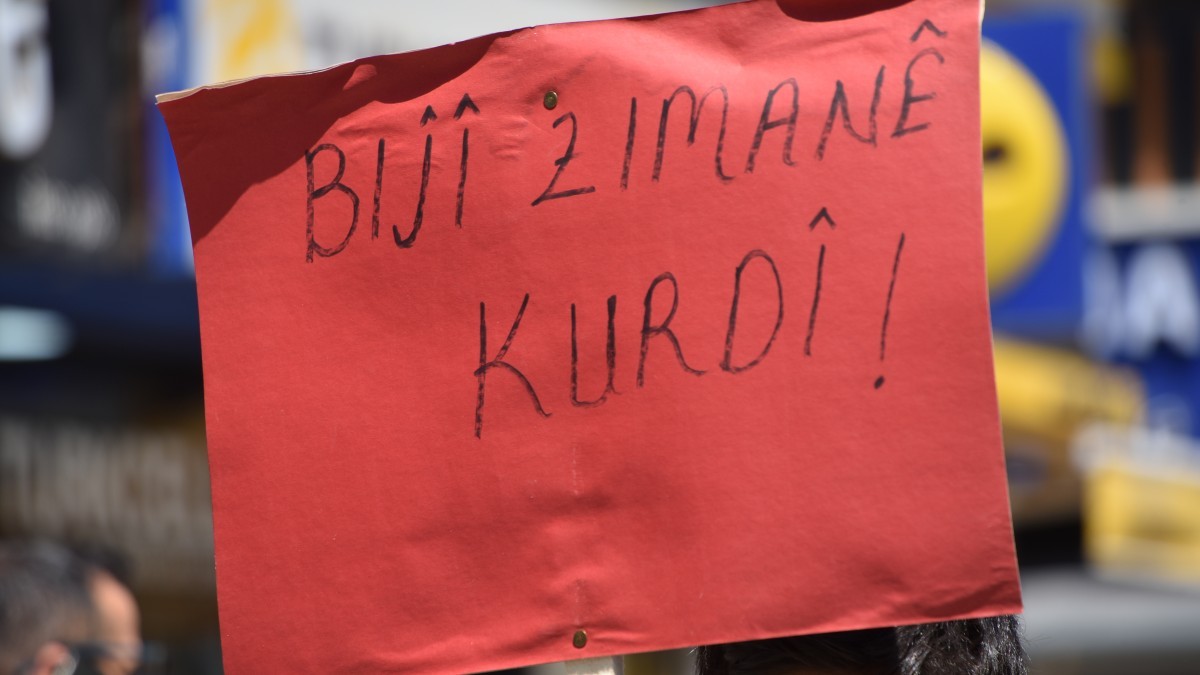 BIJÎ ZIMANÊ
KURDÎ!